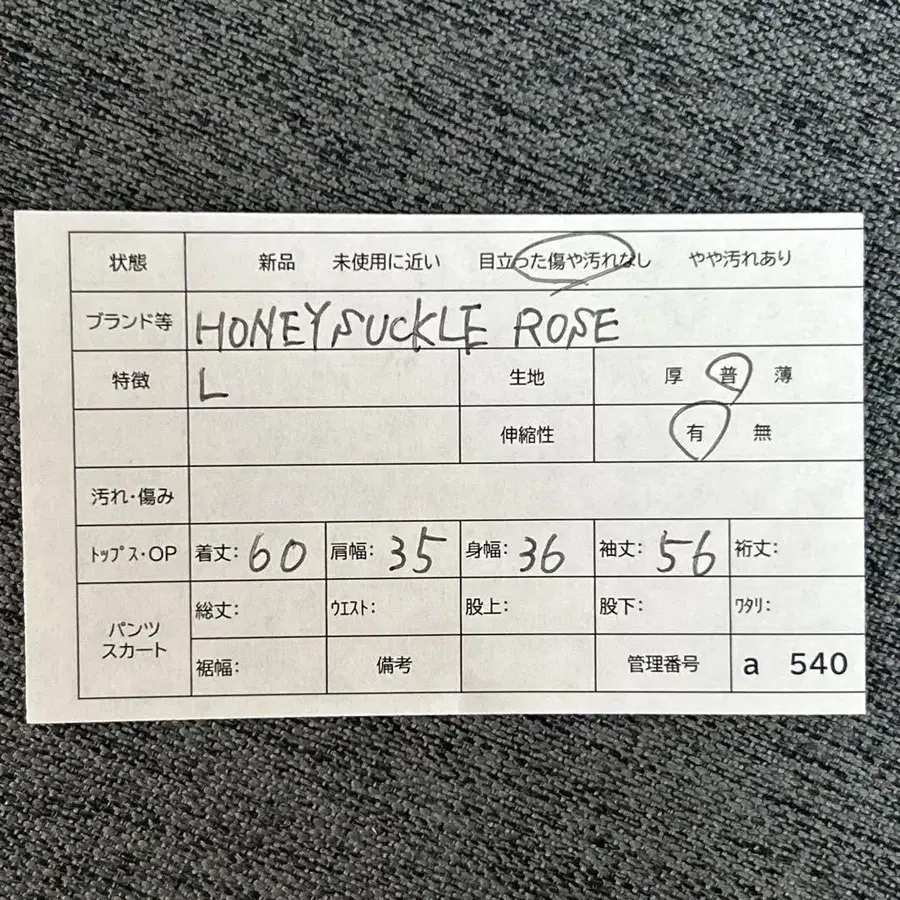 状態 新品 未使用に近い 目立った傷や汚れなし やや汚れあり
ブランド等 HONEYSUCKLE ROSE
特徴 L 生地 厚 普 薄
伸縮性 有 無
汚れ・傷み
ﾄｯﾌﾟｽ・OP 着丈: 60 肩幅: 35 身幅: 36 袖丈: 56 裄丈:
パンツ スカート 総丈: ｳｴｽﾄ: 股上: 股下: ﾜﾀﾘ:
裾幅: 備考 管理番号 a 540